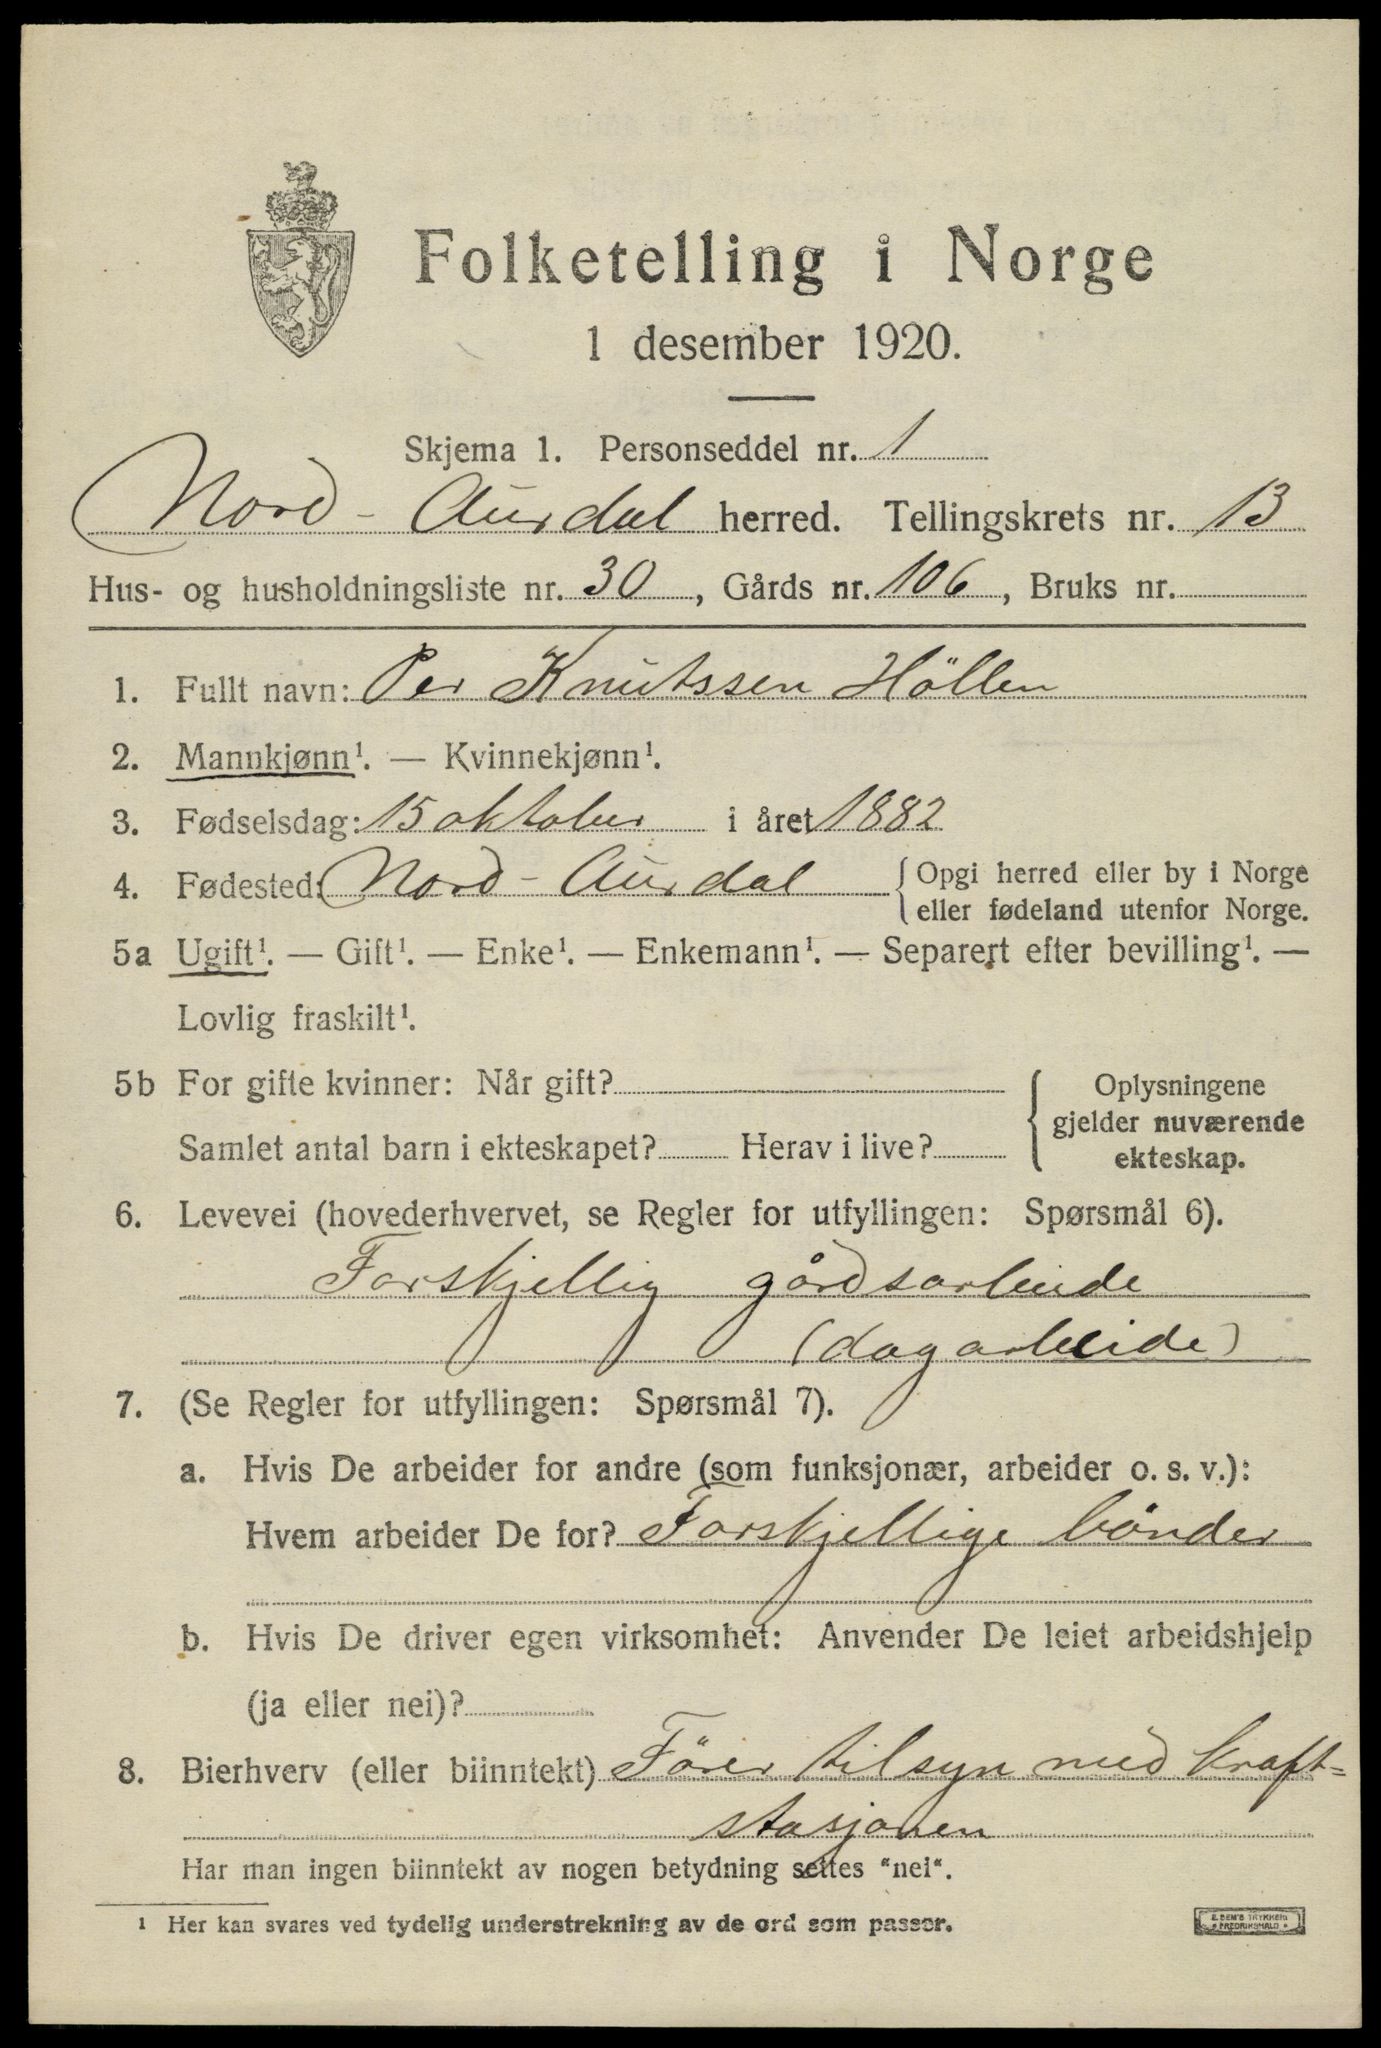 Folketelling i Norge
1 desember 1920.
Skjema 1. Personseddel nr. 1
Nord-Aurdal herred. Tellingskrets nr. 13
Hus- og husholdningsliste nr. 30, Gårds nr. 106, Bruks nr.
1. Fullt navn: Per Knutssen Höllen
2. Mannkjønn¹. — Kvinnekjønn¹.
3. Fødselsdag: 15 oktober i året 1882
4. Fødested: Nord-Aurdal { Opgi herred eller by i Norge
eller fødeland utenfor Norge.
5a Ugift¹. — Gift¹. — Enke¹. — Enkemann¹. — Separert efter bevilling¹. —
Lovlig fraskilt¹.
5b For gifte kvinner: Når gift? { Oplysningene
gjelder nuværende
Samlet antal barn i ekteskapet? Herav i live? ekteskap.
6. Levevei (hovederhvervet, se Regler for utfyllingen: Spørsmål 6).
Forskjellig gårdsarbeide
(dagarbeide)
7. (Se Regler for utfyllingen: Spørsmål 7).
a. Hvis De arbeider for andre (som funksjonær, arbeider o. s. v.):
Hvem arbeider De for? Forskjellige bönder
b. Hvis De driver egen virksomhet: Anvender De leiet arbeidshjelp
(ja eller nei)?
8. Bierhverv (eller biinntekt) Förer tilsyn med kraft=
stasjonen
Har man ingen biinntekt av nogen betydning settes "nei".
¹ Her kan svares ved tydelig understrekning av de ord som passer.
E. SEM'S TRYKKERI
FREDRIKSHALD